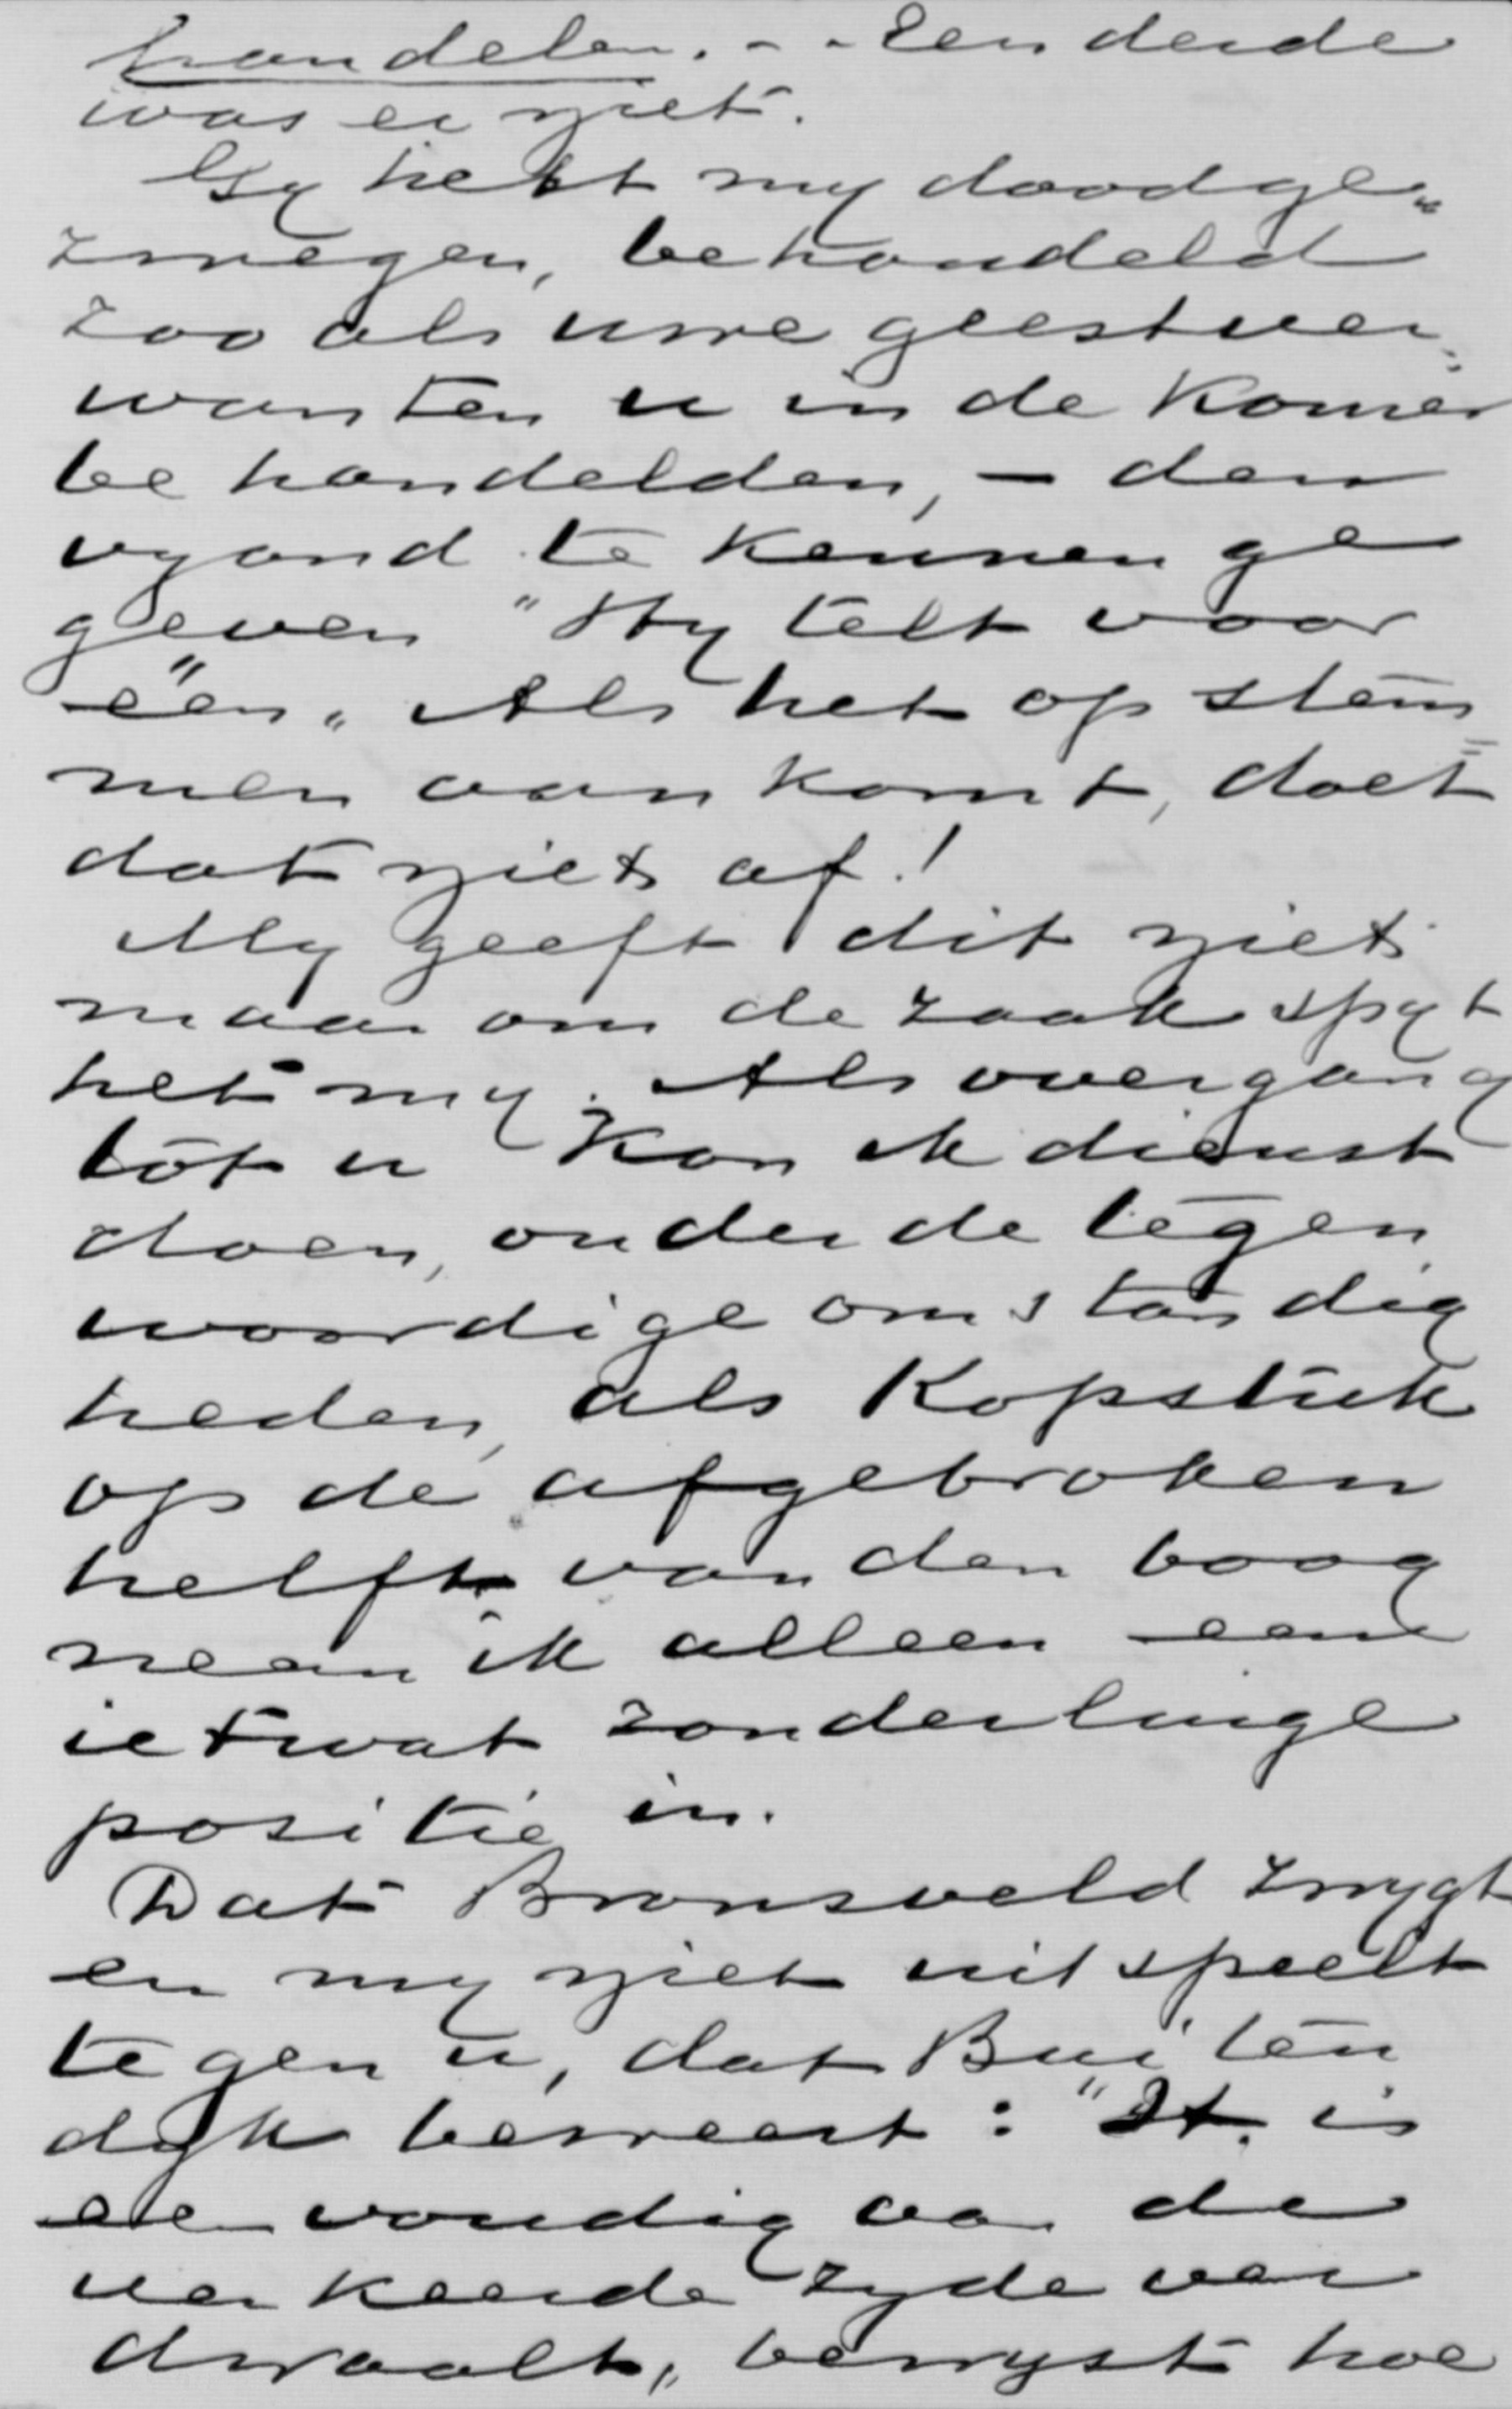 handelen. - - Een derde
was er niet.
Gy hebt my doodge„
zwegen, behandeld
zoo als uwe geestver„
wanten u in de Kamer
behandelden, — den
vyand te kennen ge
geven "Hy telt voor
één„ Als het op stem
men aan komt, doet
dat niets af!
My geeft dit niets
maar om de zaak spyt
het my. Als overgang
tot u kon ik dienst
doen, onder de tegen
woordige omstandig
heden, als Kopstuk
op de afgebroken
helft van den boog
neem ik alleen eene
ietwat zonderlinge
positie in.
Dat Bronsveld zwygt
en my niet uitspeelt
tegen u, dat Buiten
dyk beweert: "St. is
een voudig aan de
verkeerde zyde ver
dwaald„ bewyst hoe